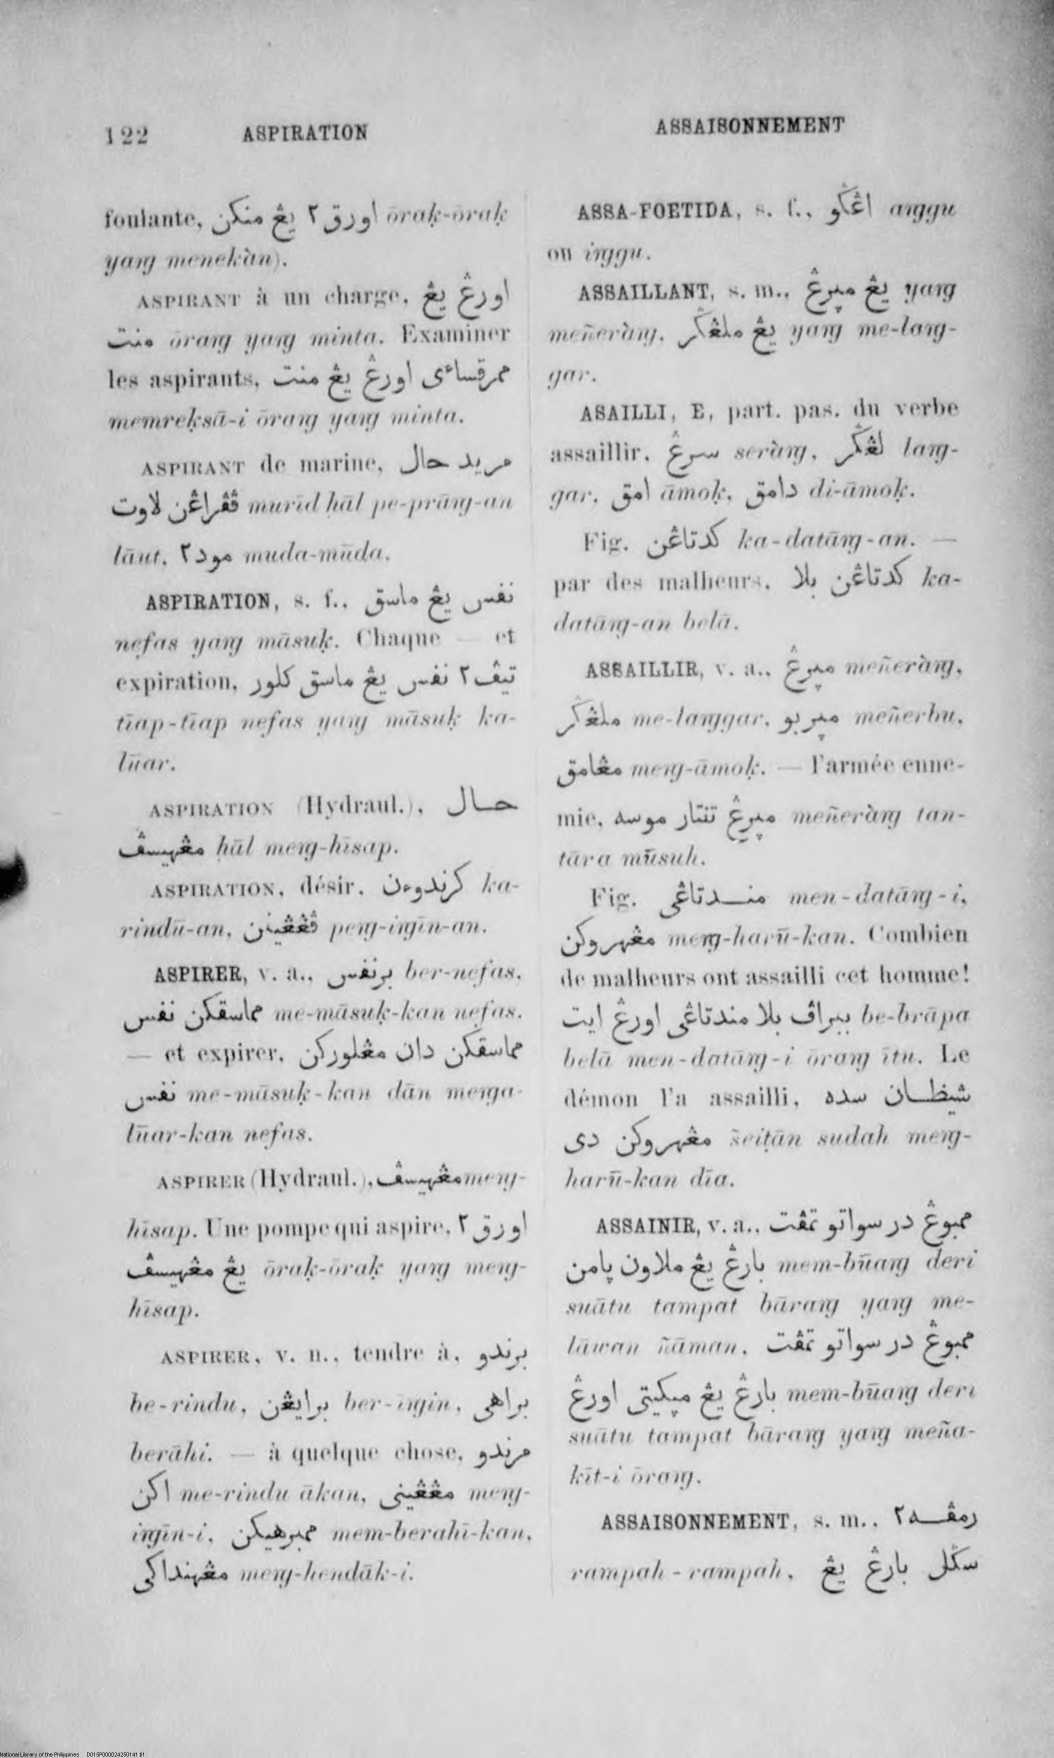 122 ASPIRATION
ASSAISONNEMENT
foulante, اورق٢ يڠ منكن ōraḳ-ōraḳ
yaŋg menekàn).
ASPIRANT à un charge, اورڠ يڠ
منت ōraŋg yaŋg minta. Examiner
les aspirants, ممرقساءى اورڠ يڠ منت
memreḳsā-i ōraŋg yaŋg minta.
ASPIRANT de marine, مريد حال
ڤڤراڠن لاوت murīd ḥāl pe-prāŋg-an
lāut, مود٢ muda-mūda.
ASPIRATION, s. f., نفس يڠ ماسق
nefas yaŋg māsuḳ. Chaque — et
expiration, تيڤ٢ نفس يڠ ماسق كلور
tīap-tīap nefas yaŋg māsuḳ ka-
lūar.
ASPIRATION (Hydraul.), حال
مڠهيسڤ ḥāl meŋg-hīsap.
ASPIRATION, désir, كرندوءن ka-
rindū-an, ڤڠڠينن peŋg-iŋgīn-an.
ASPIRER, v. a., برنفس ber-nefas,
مماسقكن نفس me-māsuḳ-kan nefas.
— et expirer, مماسقكن دان مڠلوركن
نفس me-māsuḳ-kan dān meŋga-
lūar-kan nefas.
ASPIRER (Hydraul.), مڠهيسڤ meŋg-
hīsap. Une pompe qui aspire, اورق٢
يڠ مڠهيسڤ ōraḳ-ōraḳ yaŋg meŋg-
hīsap.
ASPIRER, v. n., tendre à, برندو
be-rindu, برايڠن ber-iŋgin, براهى
berāhi. — à quelque chose, مرندو
اكن me-rindu ākan, مڠڠينى meŋg-
iŋgīn-i, ممبرهيكن mem-berahī-kan,
مڠهنداكى meŋg-hendāk-i.
ASSA-FOETIDA, s. f., اڠݢو aŋggu
ou iŋggu.
ASSAILLANT, s. m., يڠ مڽرڠ yaŋg
meñeràŋg, يڠ ملڠݢر yaŋg me-laŋg-
gar.
ASAILLI, E, part. pas. du verbe
assaillir, سرڠ seràŋg, لڠݢر laŋg-
gar, امق āmoḳ, دامق di-āmoḳ.
Fig. كدتاڠن ka-datāŋg-an. —
par des malheurs, كدتاڠن بلا ka-
datāŋg-an belā.
ASSAILLIR, v. a., مڽرڠ meñeràŋg,
ملڠݢر me-laŋggar, مڽربو meñerbu,
مڠامق meŋg-āmoḳ. — l'armée enne-
mie, مڽرڠ تنتار موسه meñeràŋg tan-
tāra mūsuh.
Fig. مندتاڠى men-datāŋg-i,
مڠهروكن meŋg-harū-kan. Combien
de malheurs ont assailli cet homme!
ببراڤ بلا مندتاڠى اورڠ ايت be-brāpa
belā men-datāŋg-i ōraŋg ītu. Le
démon l'a assailli, شيطان سده
مڠهروكن دى šeiṭān sudah meŋg-
harū-kan dīa.
ASSAINIR, v. a., ممبوڠ در سواتو تمڤت
بارڠ يڠ ملاون ڽامن mem-būaŋg deri
suātu tampat bāraŋg yaŋg me-
lāwan ñāman, ممبوڠ در سواتو تمڤت
بارڠ يڠ مڽكيتى اورڠ mem-būaŋg deri
suātu tampat bāraŋg yaŋg meña-
kīt-i ōraŋg.
ASSAISONNEMENT, s. m., رمڤه٢
rampah-rampah, سݢل بارڠ يڠ
National Library of the Philippines